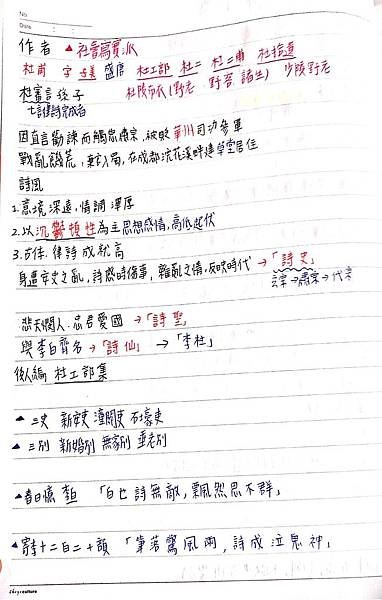 No.
Date
作者 ▲社會寫實派
杜甫 字子美 盛唐 杜工部 杜二 杜二甫 杜拾遺
杜審言孫子 杜陵布衣(野老、野客、諸生) 少陵野老
七律詩完成者
因直言勸諫而觸怒肅宗,被貶華州司功參軍
戰亂饑荒,棄官入蜀,在成都浣花溪畔建草堂居住
詩風
1.意境深遠,情調渾厚
2.以沉鬱頓挫為主思想感情,高低起伏
3.古体、律詩成就高
身遭安史之亂,詩感時傷事,離亂之情,反映時代→「詩史」
玄宗→肅宗→代宗
悲天憫人、忠君愛國→「詩聖」
與李白齊名→「詩仙」→「李杜」
後人編 杜工部集
▲三吏 新安吏 潼關吏 石壕吏
▲三別 新婚別 無家別 垂老別
▲春日憶李白 「白也詩無敵,飄然思不群」
▲寄李十二白二十韻 「筆落驚風雨,詩成泣鬼神」